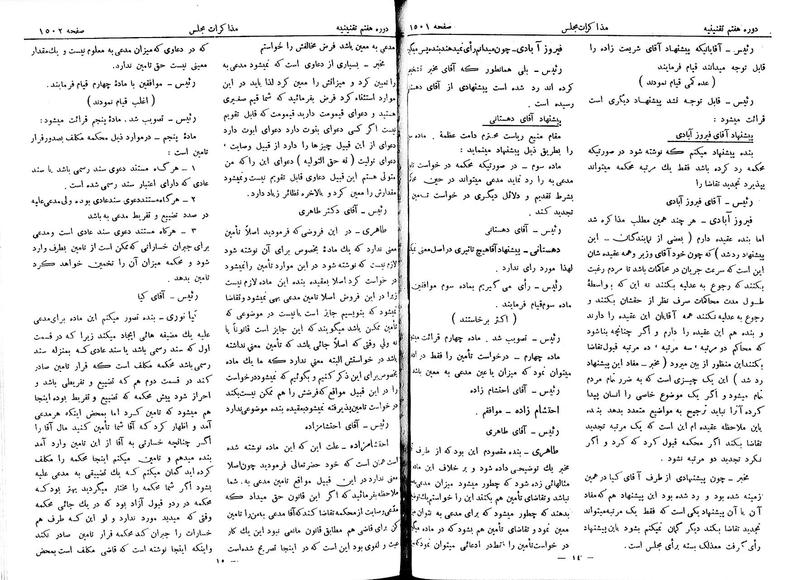 دوره هفتم تقنینیه
مذاکرات مجلس
صفحه ۱۵۰۱
رئیس ـ آقایانیکه پیشنهاد آقای شریعت زاده را
قابل توجه میدانند قیام فرمایند
( عده کمی قیام نمودند )
رئیس ـ قابل توجه نشد پیشنهاد دیگری است
قرائت میشود :
پیشنهاد آقای فیروز آبادی
بنده پیشنهاد میکنم که نوشته شود در صورتیکه
محکمه رد کرده باشد فقط یک مرتبه محکمه میتواند
بپذیرد تجدید تقاضا را
رئیس ـ آقای فیروز آبادی
فیروز آبادی ـ هر چند همین مطلب مذاکره شد
اما بنده عقیده دارم ( بعضی از نمایندگان ـ این
پیشنهاد رد شد ) که چون خود آقای وزیر و همه عقیده شان
این است که سرعت جریان در محاکمات باشد تا مردم رغبت
بکنند که رجوع به عدلیه بکنند نه این که بواسطهٔ
طول مدت محاکمات صرف نظر از حقشان بکنند و
رجوع به عدلیه نکنند همه آقایان این عقیده را دارند
و بنده هم این عقیده را دارم و اگر چنانچه بناشود
که محاکم دو مرتبه ، سه مرتبه ، ده مرتبه قبول
بکنند این منظور از بین میرود ( مخبر ـ مفاد این پیشنهاد
رد شد ) این یک چیزی است که به ضرر تمام مردم
تمام میشود و اگر یک موضوع خاصی را انسان پیدا
کرده آنرا نباید ترجیح به مواضیع متعدد بدهد بنده
باین ملاحظه عقیده ام این است که یک مرتبه تجدید
تقاضا بکند اگر محکمه قبول کرد که کرد و اگر
نکرد تجدید دو مرتبه نشود .
مخبر ـ چون پیشنهادی از طرف آقای کیا در همین
زمینه شده بود و رد شده بود این پیشنهاد هم که مفاد
آن با آن پیشنهاد یکی است که فقط یک مرتبه میتواند
تجدید تقاضا بکند دیگر گمان نمیکنم بشود باین پیشنهاد
رأی گرفت معذلک بسته برأی مجلس است .
فیروز آبادی ـ چون میدانم رأی نمیدهند بنده پس میگیرم
رئیس ـ بلی همانطور که آقای مخبر
کرده اند رد شده است پیشنهادی از آقای دهستانی
رسیده است .
پیشنهاد آقای دهستانی
مقام منیع ریاست محترم دامت عظمة . ماده سوم
را بطریق ذیل پیشنهاد مینماید :
ماده سوم ـ در صورتیکه محکمه درخواست تأمین
مدعی به را رد نماید مدعی میتواند در حین
بشرط تقدیم و دلائل دیگری درخواست تأمین
تجدید کند .
رئیس ـ آقای دهستانی
دهستانی ـ پیشنهاد آقا هیچ تاثیری در اصل معنی
لهذا مورد رای ندارد .
رئیس ـ رأی می گیریم بماده سوم موافقین
ماده سوم قیام فرمایند .
( اکثر برخاستند )
رئیس ـ تصویب شد . ماده چهارم قرائت میشود
ماده چهارم ـ درخواست تأمین را فقط در
میتوان نمود که میزان یا عین مدعی به معین باشد
رئیس ـ آقای احتشام زاده
احتشام زاده ـ موافقم .
رئیس ـ آقای طاهری
طاهری ـ بنده مقصودم این بود که از طرف آقای
مخبر یک توضیحی داده شود و بر خلاف این ماده
مثالهائی زده شود که چطور میشود میزان مدعی
نباشد و تقاضای تأمین هم بکنند این را خواستم
بدهند که چطور میشود که برای مدعی به نتوان
معین نمود و تقاضای تأمین هم بشود که در ماده
درخواست تأمین را فقط در ادعائی میتوان نمود که
ـ ۱۴ ـ
دوره هفتم تقنینیه
مذاکرات مجلس
صفحه ۱۵۰۲
مدعی به معین باشد فرض مخالفش را خواستم
مخبر ـ بسیاری از دعاوی است که نمیشود مدعی به
را تعیین کرد و میزانش را معین کرد لذا باید در این
موارد استفاده کرد فرض بفرمائید که شما قیم صغیری
هستید و دعوای قیمومت دارید قیمومت که قابل تقویم
نیست اگر کسی دعوای بنوت دارد دعوای ابوت دارد
دعوای از این قبیل چیزها را دارد از قبیل وصایت ،
دعوای تولیت ( نه حق التولیه ) دعوای این را که من
متولی هستم این قبیل دعاوی قابل تقویم نیست و نمیشود
مقدارش را معین کرد و بالاخره نظائر زیاد دارد.
رئیس ـ آقای دکتر طاهری
طاهری ـ در این فروضی که فرمودید اصلاً تأمین
معنی ندارد که یک مادهٔ بخصوص برای آن نوشته شود
لازم نیست که نوشته شود در این موارد تأمین را نمیشود
درخواست کرد اصلاً بعقیده بنده این ماده لازم نیست
زیرا در این فروض اصلاً تامین مدعی بهی نمیشود و تقاضا
نمیشود که بنویسیم جایز است یا نیست در موضوعی که
تأمین ممکن باشد میگویند که این جایز است قانوناً یا
نه ولی وقتی که اصلاً جائی باشد که تأمین معنی نداشته
باشد درخواستش البته معنی ندارد که ما یک ماده
بخصوص برای این ذکر کنیم و بگوئیم که نمیشود درخواست
را در این قبیل مواقع که فرضش را هم ممکن نیست بکند
درخواست تامین پذیرفته نمیشود بعقیده بنده موضوعی ندارد
رئیس ـ آقای احتشام زاده
احتشام زاده ـ علت این که این ماده نوشته شده
است همان است که خود حضرتعالی فرمودید چون اصلاً
معنی ندارد در این قبیل مواقع تأمین مدعی به. شما
ملاحظه بفرمائید که اگر این قانون حق میداد که
مدعی وصایت از محکمه تقاضا کند که آقا مدعی به من را تامین
کن برای قاضی هم مطابق قانون مانعی نبود این یک کار
عبث و لغوی بود این است که در اینجا تصریح شده است
که در دعاوی که میزان مدعی به معلوم نیست و یک مقدار
معینی نیست حق تامین ندارد.
رئیس ـ موافقین با مادهٔ چهارم قیام فرمایند .
( اغلب قیام نمودند )
رئیس ـ تصویب شد . مادهٔ پنجم قرائت میشود :
مادهٔ پنجم ـ در موارد ذیل محکمه مکلف بصدور قرار
تامین است :
۱ ـ هر گاه مستند دعوی سند رسمی باشد یا سند
عادی که دارای اعتبار سند رسمی شده است .
۲ ـ هر گاه مستند دعوی سند عادی بوده ولی مدعی علیه
در صدد تضییع و تفریط مدعی به باشد
۳ ـ هر گاه مستند دعوی سند عادی است و مدعی
برای جبران خساراتی که ممکن است از تامین بطرف وارد
شود و محکمه میزان آن را تخمین خواهد کرد
تامین بدهد .
رئیس ـ آقای کیا
کیا نوری ـ بنده تصور میکنم این ماده برای مدعی
علیه یک مضیقه هائی ایجاد میکند زیرا که در قسمت
اول که سند رسمی باشد یا سند عادی که بمنزله سند
رسمی باشد محکمه مکلف است که قرار تامین صادر
کند در قسمت دوم هم که تضییع و تفریطی باشد و
احراز شود پیش محکمه که تضییع و تفریط بوده اینجا
هم میشود که تامین کرد اما بمحض اینکه هر مدعی
آمد و اظهار کرد که آقا شما تأمین کنید مال آقا را
اگر چنانچه خسارتی به آقا از این تامین وارد آمد
بنده میدهم و تامین میکنم اینجا محکمه را مکلف
کرده اید گمان میکنم که یک تضییقی به مدعی علیه
بشود اگر شما محکمه را مختار میگردید بهتر بود که
محکمه در رد و قبول آزاد بود که در یک جائی محکمه
وقتی که میدید مورد ندارد و لو این که طرف هم
خسارات را جبران کند محکمه قرار تامین صادر نکند
واینکه اینجا نوشته است که قاضی مکلف است بمحض
ـ ۱۵ ـ